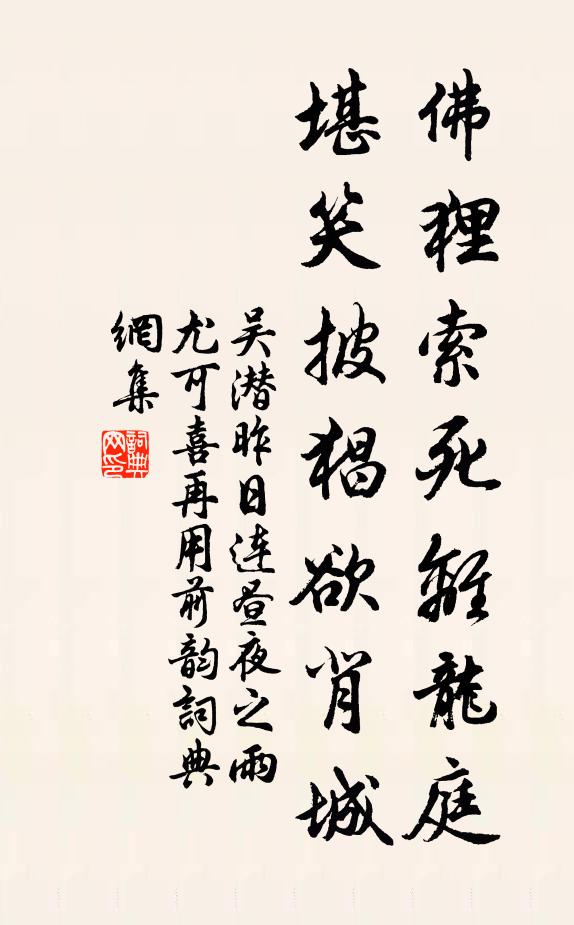 佛狸索死離龍庭
堪笑披猖欲背城
吴潜昨日连昼夜之雨
尤可喜再用前韵詞典
網集
詞典网印